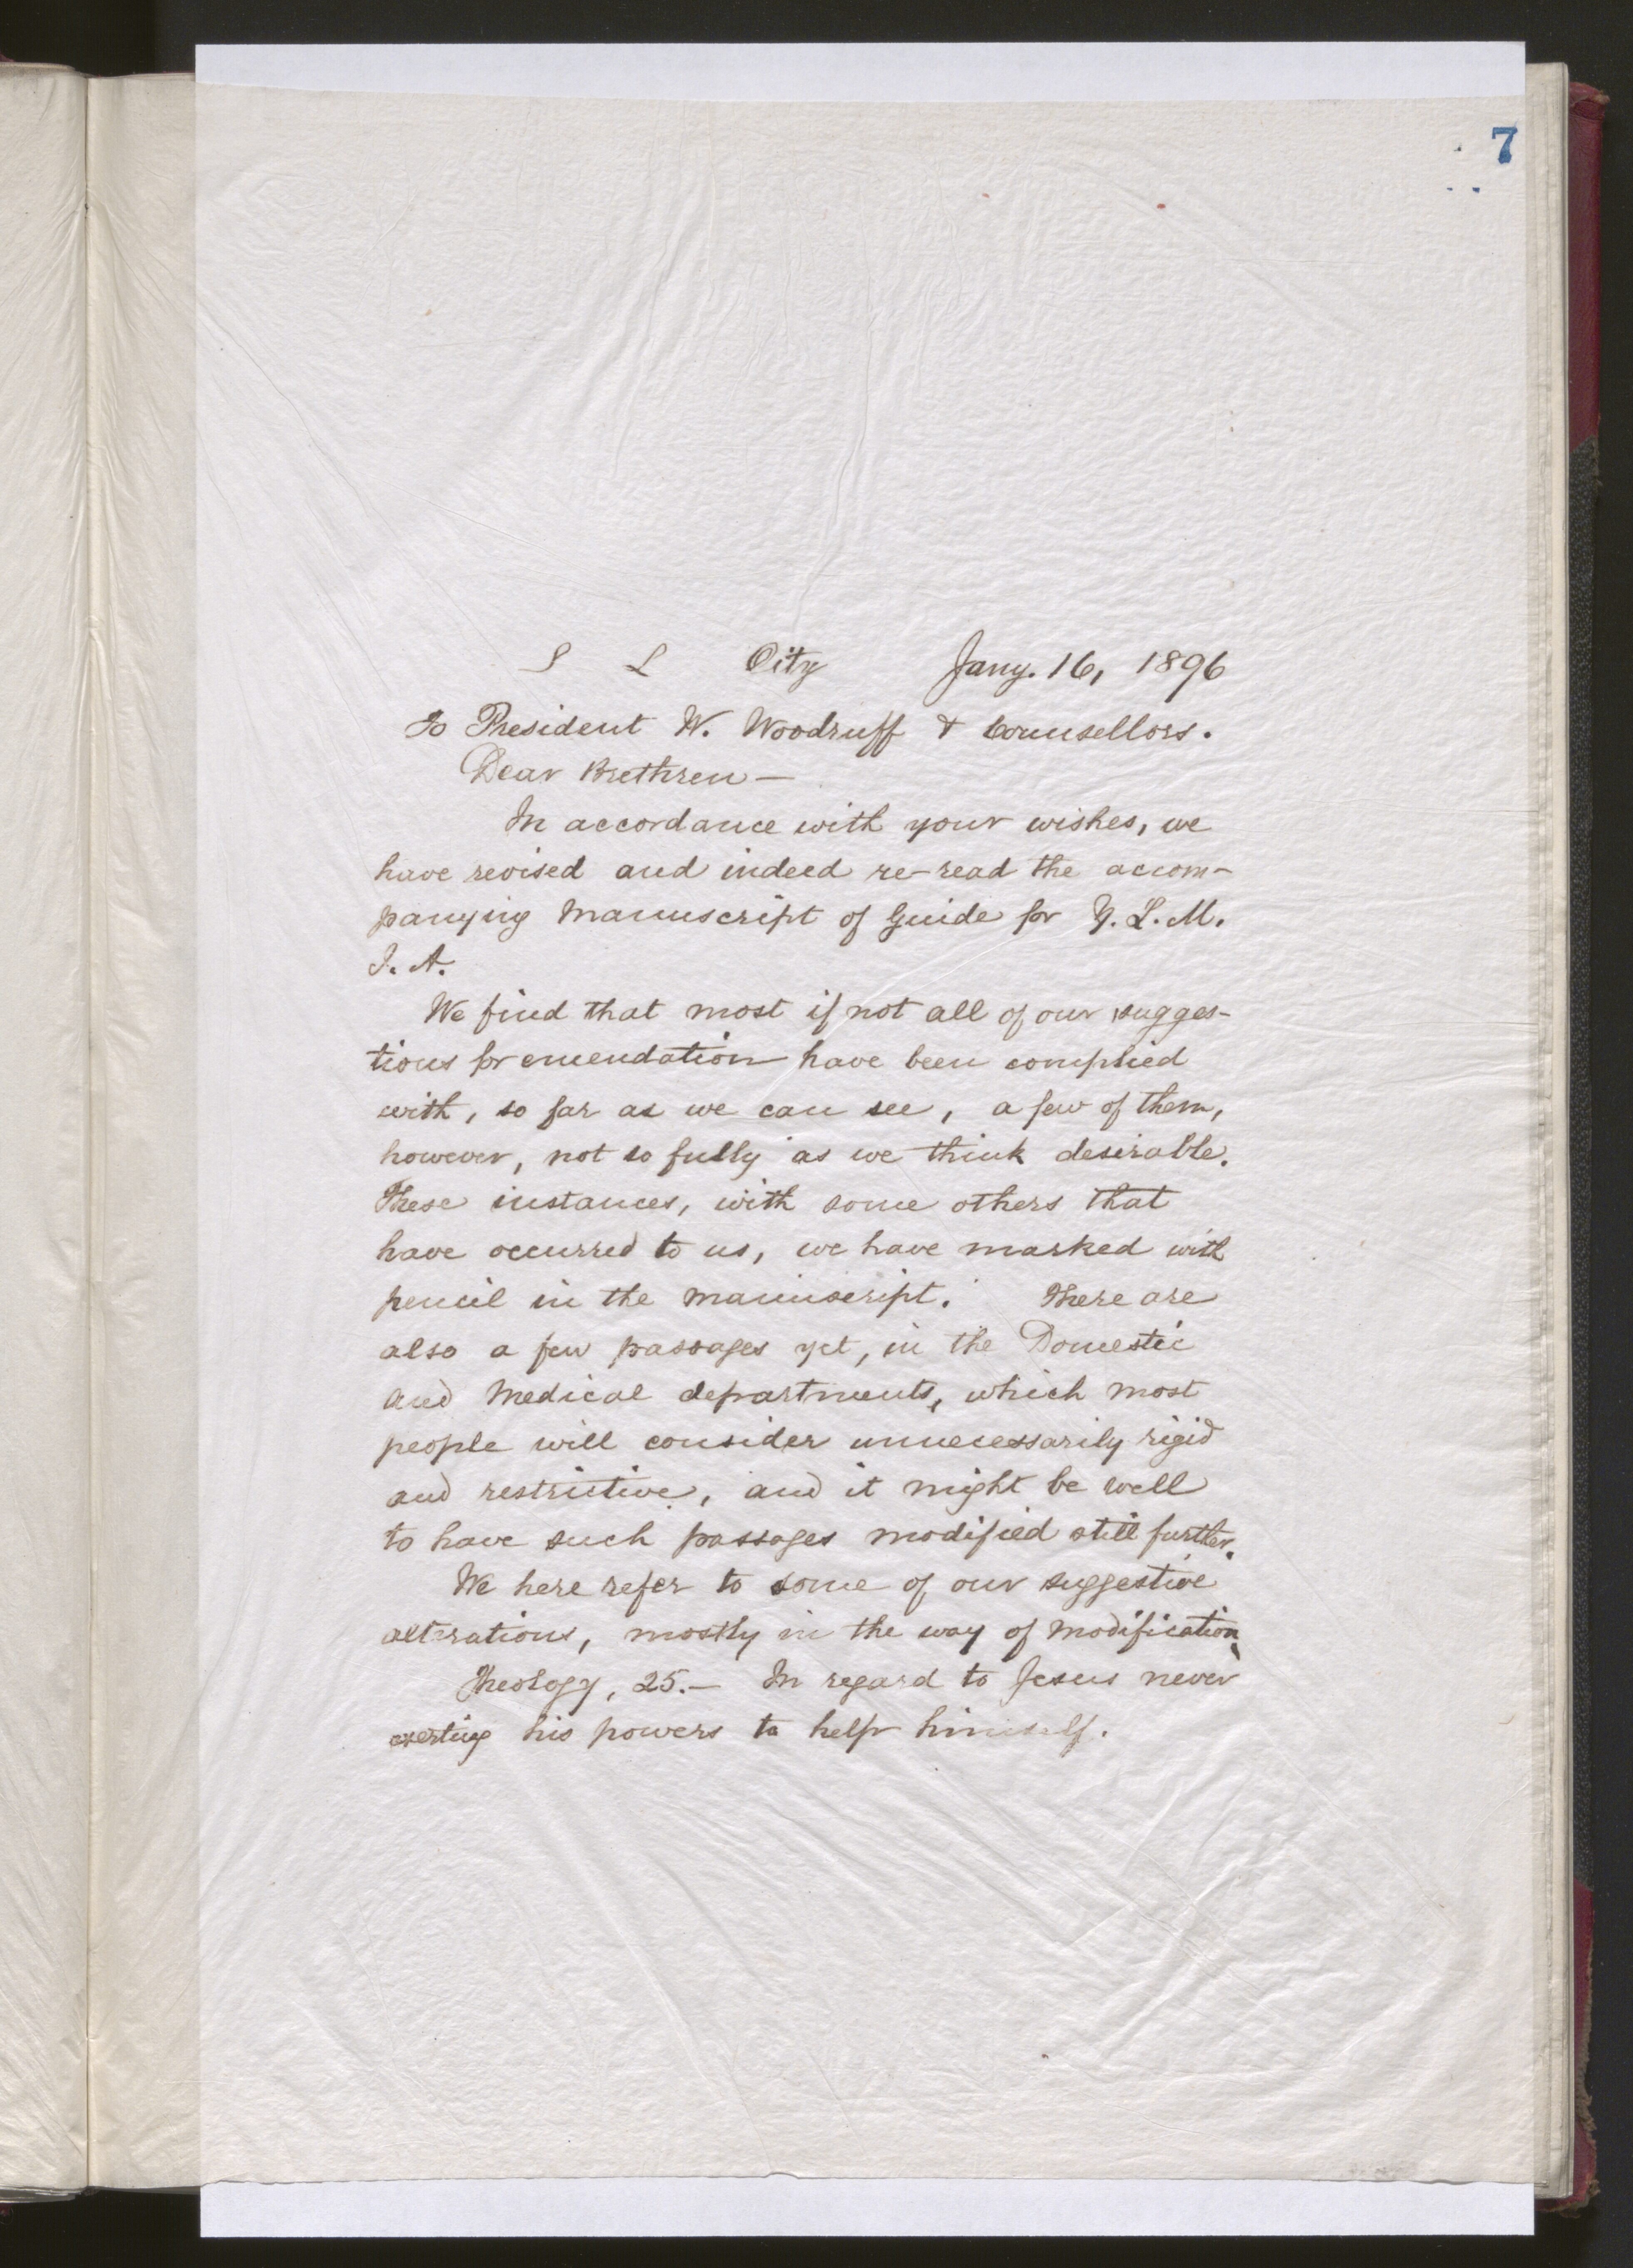 7
S L City Jany. 16, 1896
To President W. Woodruff & Counsellors.
Dear Brethren —
In accordance with your wishes, we
have revised and indeed re-read the accom-
panying Manuscript of Guide for Y. L. M.
I. A.
We find that most if not all of our sugges-
tions for emendation have been complied
with, so far as we can see, a few of them,
however, not so fully as we think desirable.
These instances, with some others that
have occurred to us, we have marked with
pencil in the manuscript. There are
also a few passages yet, in the Domestic
and Medical departments, which most
people will consider unnecessarily rigid
and restrictive, and it might be well
to have such passages modified still further.
We here refer to some of our suggestive
alterations, mostly in the way of modification.
Theology, 25.— In regard to Jesus never
exerting his powers to help himself.